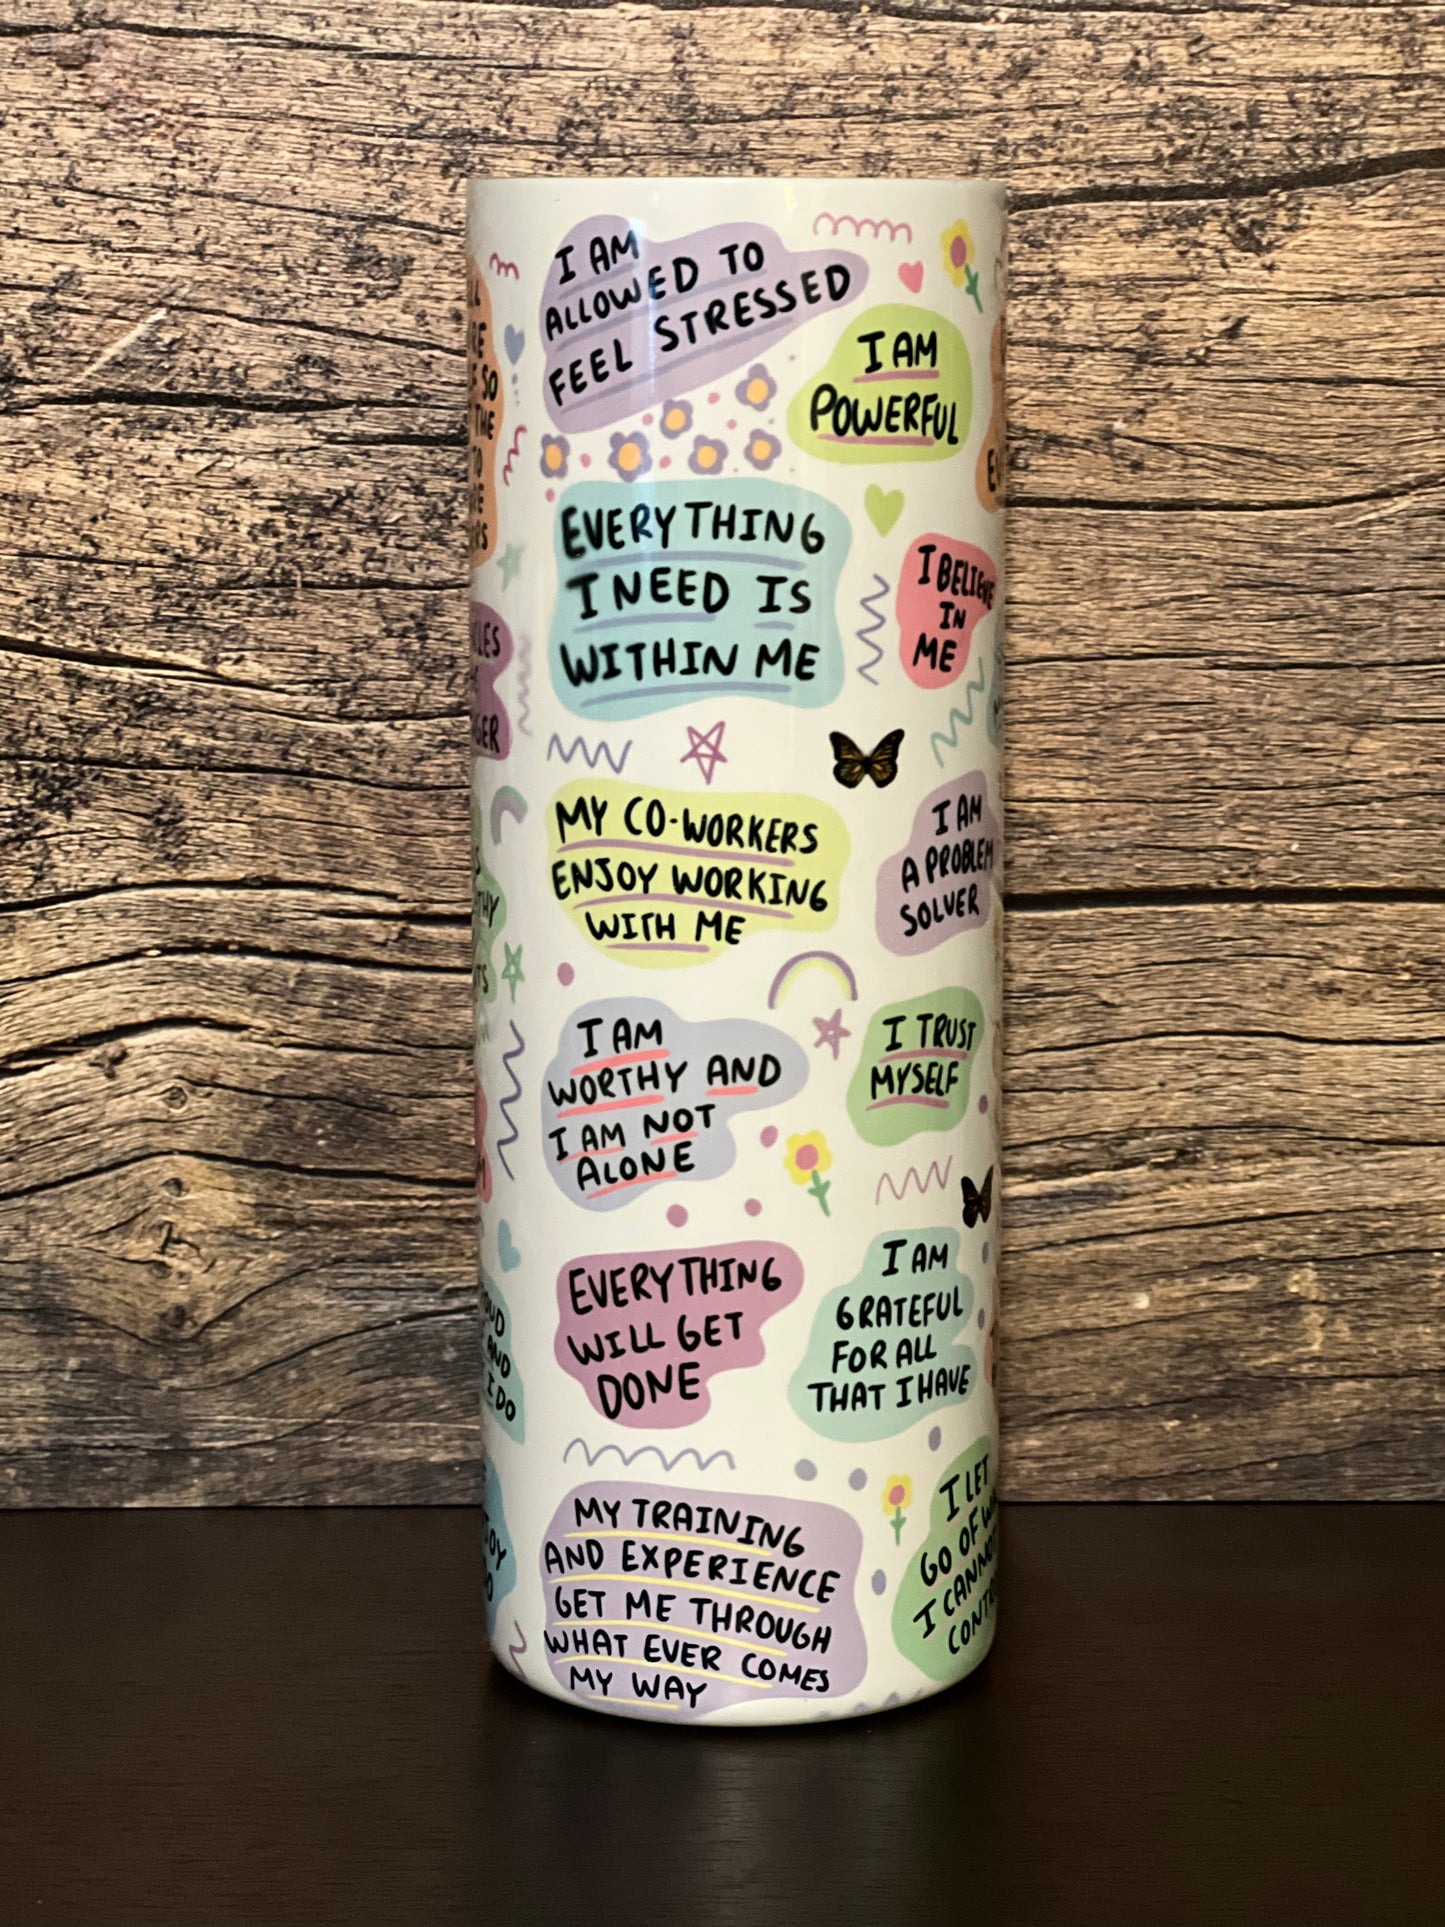 I AM
ALLOWED TO
FEEL STRESSED
I AM
POWERFUL
EVERYTHING
I NEED IS
WITHIN ME
I BELIEVE
IN
ME
MY CO-WORKERS
ENJOY WORKING
WITH ME
I AM
A PROBLEM
SOLVER
I AM
WORTHY AND
I AM NOT
ALONE
I TRUST
MYSELF
EVERYTHING
WILL GET
DONE
I AM
GRATEFUL
FOR ALL
THAT I HAVE
MY TRAINING
AND EXPERIENCE
GET ME THROUGH
WHAT EVER COMES
MY WAY
I LET
GO OF
I CANNOT
SO
THE
TO
AND
I DO